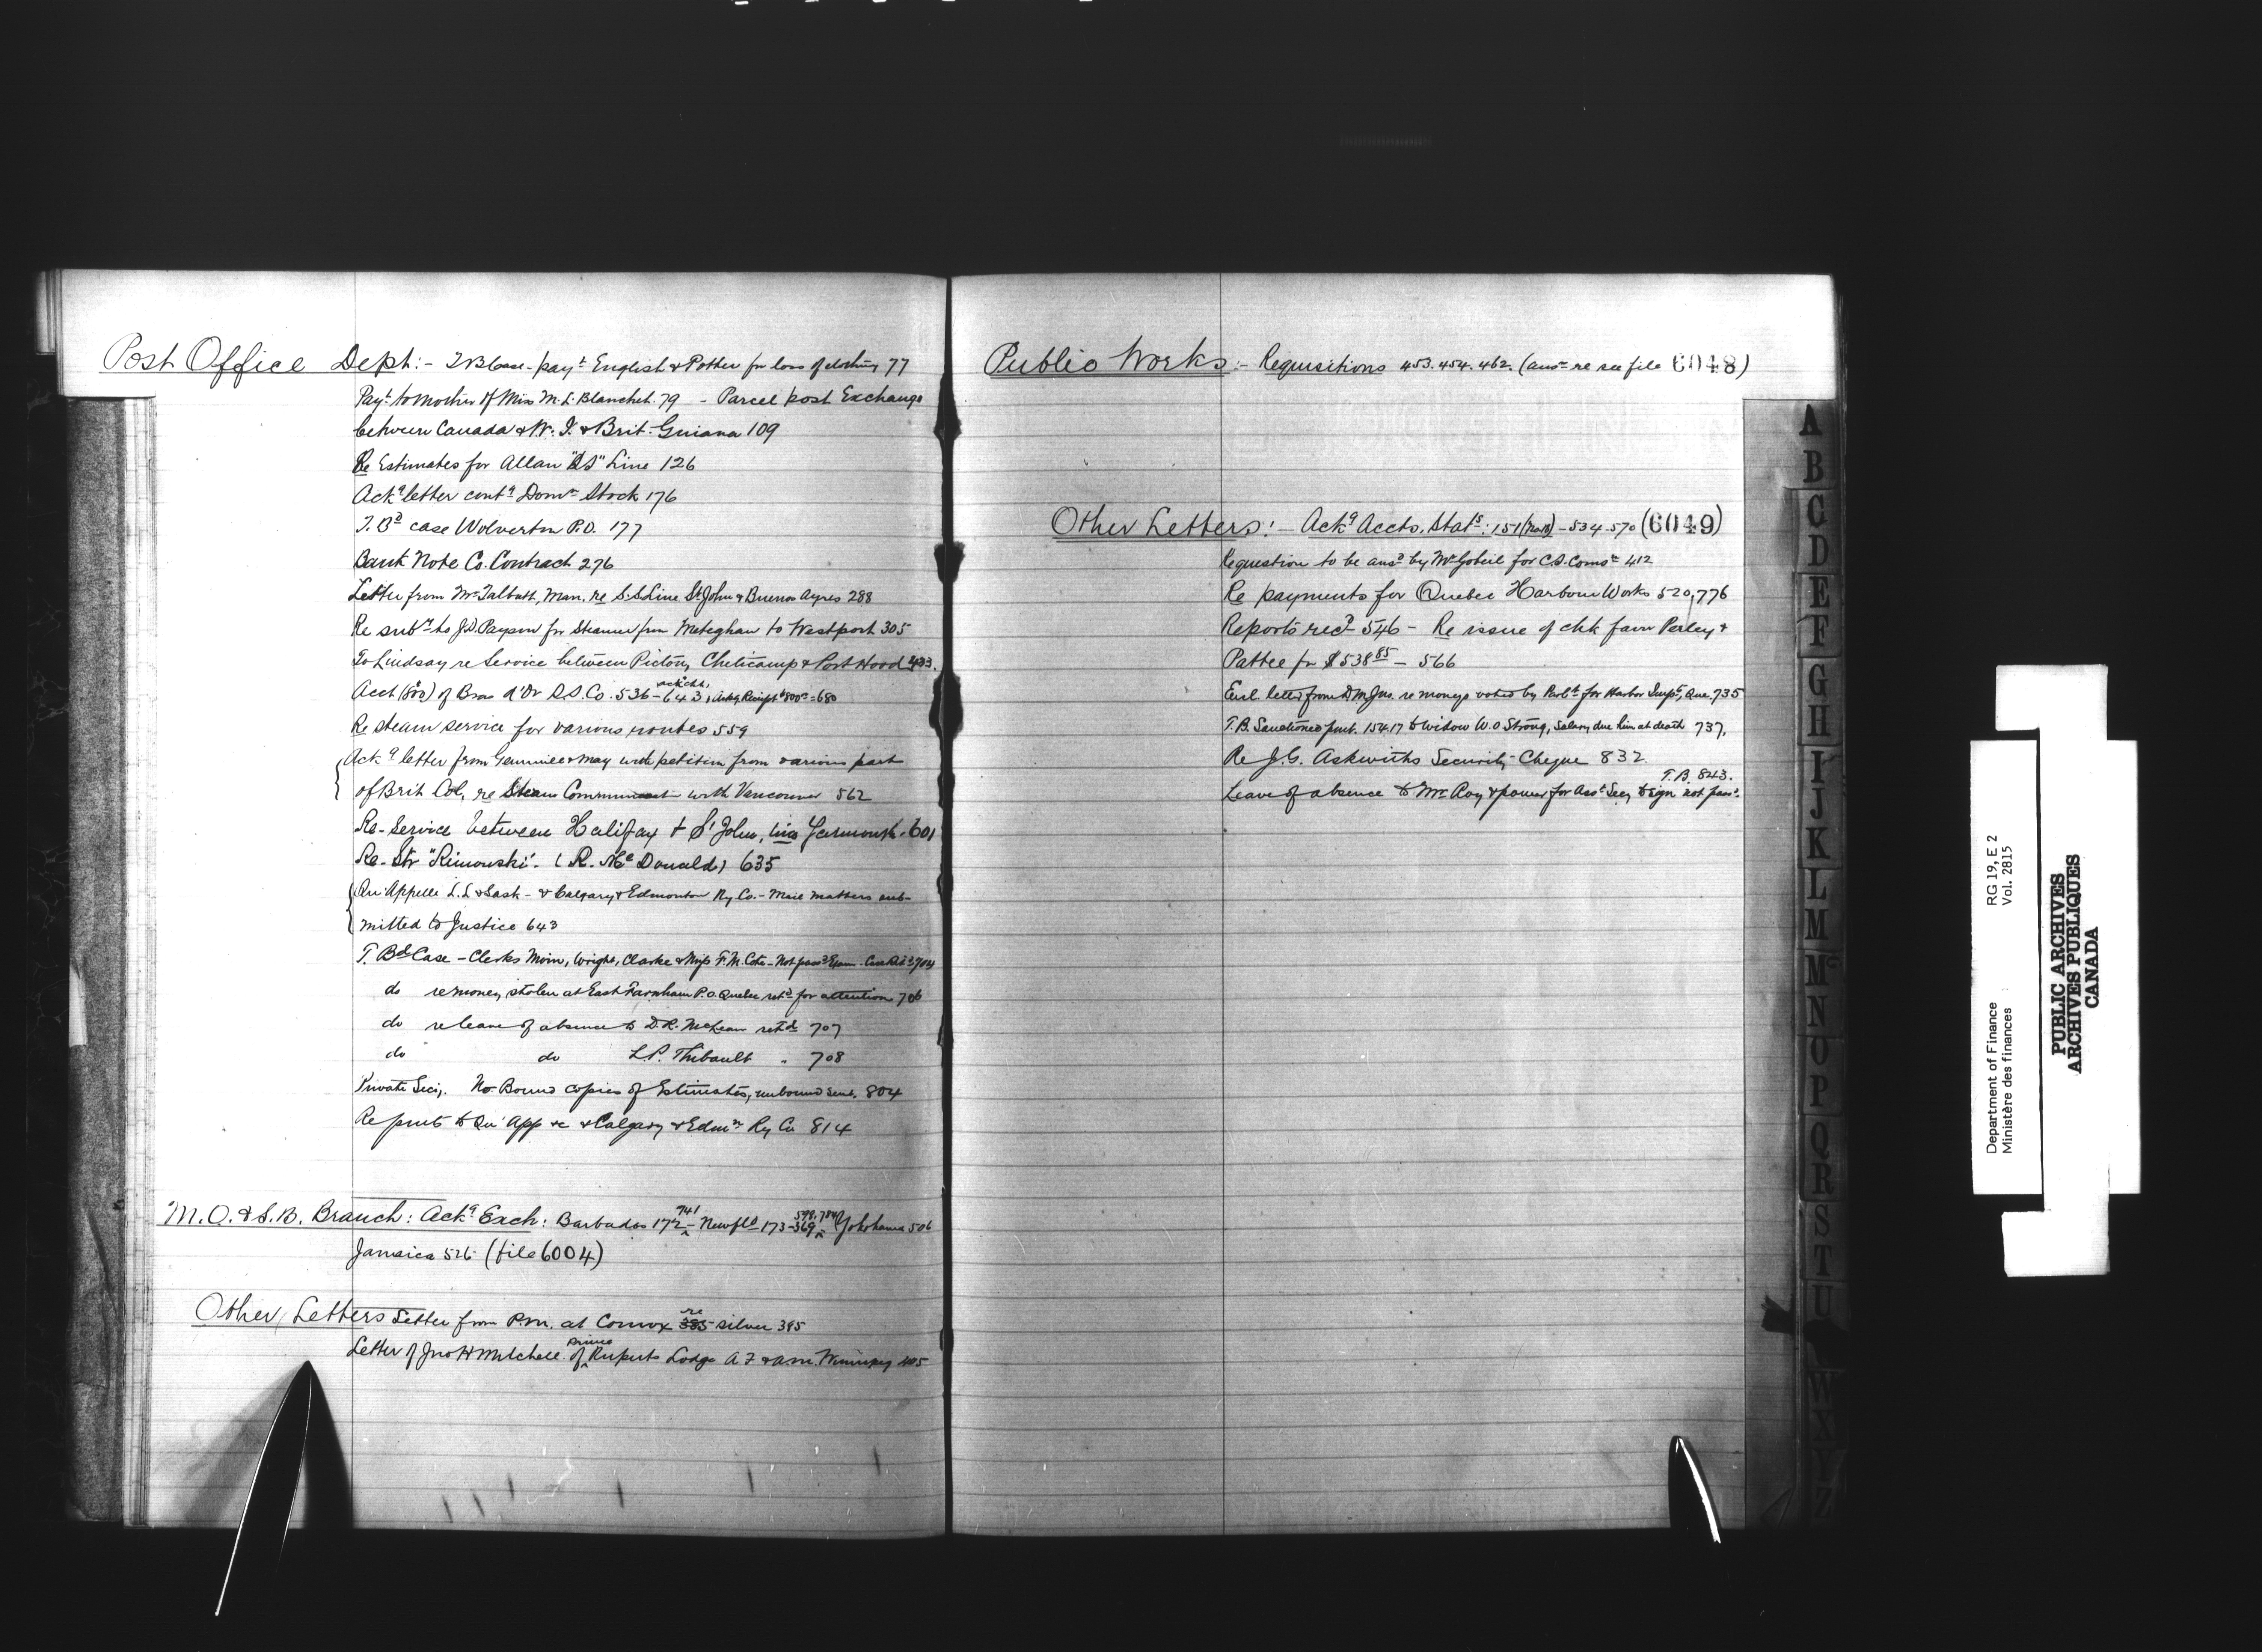 Post Office Dept:- T B Case - payt English & Potter for loss of clothing 77
Payt to mother of Miss M. L. Blanchet. 79 - Parcel post Exchange
between Canada & W. I. & Brit. Guiana 109
Re Estimates for Allan "SS" Line 126
Ackg letter contg Domn Stock 176
T. Bd case Wolverton P.O. 177
Bank Note Co. Contract 276
Letter from Mr Talbutt, Man. re S.S Line St John & Buenos Ayres 288
Re subn to J.D. Payson for Steamer from Meteghan to Westport 305
To Lindsay re Service between Pictou, Cheticamp & Port Hood 433.
Acct of Bras d'Or S.S. Co. 536 - 643, Ackg Receipt $800 - 680
Re steam service for various routes 559
Ackg letter from Gemmill & May with petition from various part
of Brit Col, re Steam Communicat with Vancouver 562
Re- Service between Halifax & St John, via Yarmouth - 601
Re- Str "Rimouski". (R. McDonald) 635
Qu'Appelle L.L & Sask - & Calgary & Edmonton Ry Co. - Mail matters sub-
mitted to Justice 643
T. Bd Case - Clerks Moin, Wright, Clarke & Miss F. M. Cote - Not passd Exam. 704
do re money stolen at East Farnham P.O. Quebec retd for attention 706
do re leave of absence to D.R. McLean retd 707
do do L.P. Thibault " 708
Private Secy. No Bound copies of Estimates, unbound sent. 804
Re pmts to Qu'App &c & Calgary & Edmn Ry Co 814
M.O. & S.B. Branch: Ackg Exch: Barbados 172, 741 - Newfld 173-369, 598, 784 Yokohama 506
Jamaica 526 (file 6004)
Other Letters Letter from P.M. at Comox re silver 395
Letter of Jno H Mitchell of Prince Ruperts Lodge A F & A M. Winnipeg 405
Public Works:- Requisitions 453. 454. 462. (ansn re see file 6048)
Other Letters:- Ackg Accts. Stats: 151 - 534-570 (6049)
Requestion to be ansd by Mr Gobeil for C.S. Comsn 412
Re payments for Quebec Harbour Works 520, 776
Reports recd 546 - Re issue of chk favr Perley &
Pattee for $538 85 - 566
Encl. letter from D.M. Jus. re moneys voted by Parlt for Harbor Impts, Que. 735
T.B. Sanctioned pmt. 154.17 to widow W.O Strong, Salary due him at death 737.
Re J.G. Askwiths Security Cheque 832.
Leave of absence to Mr Roy & power for Asst Secy to sign not passd. T.B. 843.
A
B
C
D
E
F
G
H
I
J
K
L
M
Mc
N
O
P
Q
R
S
T
U
W
X
Y
Z
Department of Finance RG 19, E 2
Ministère des finances Vol. 2815
PUBLIC ARCHIVES
ARCHIVES PUBLIQUES
CANADA